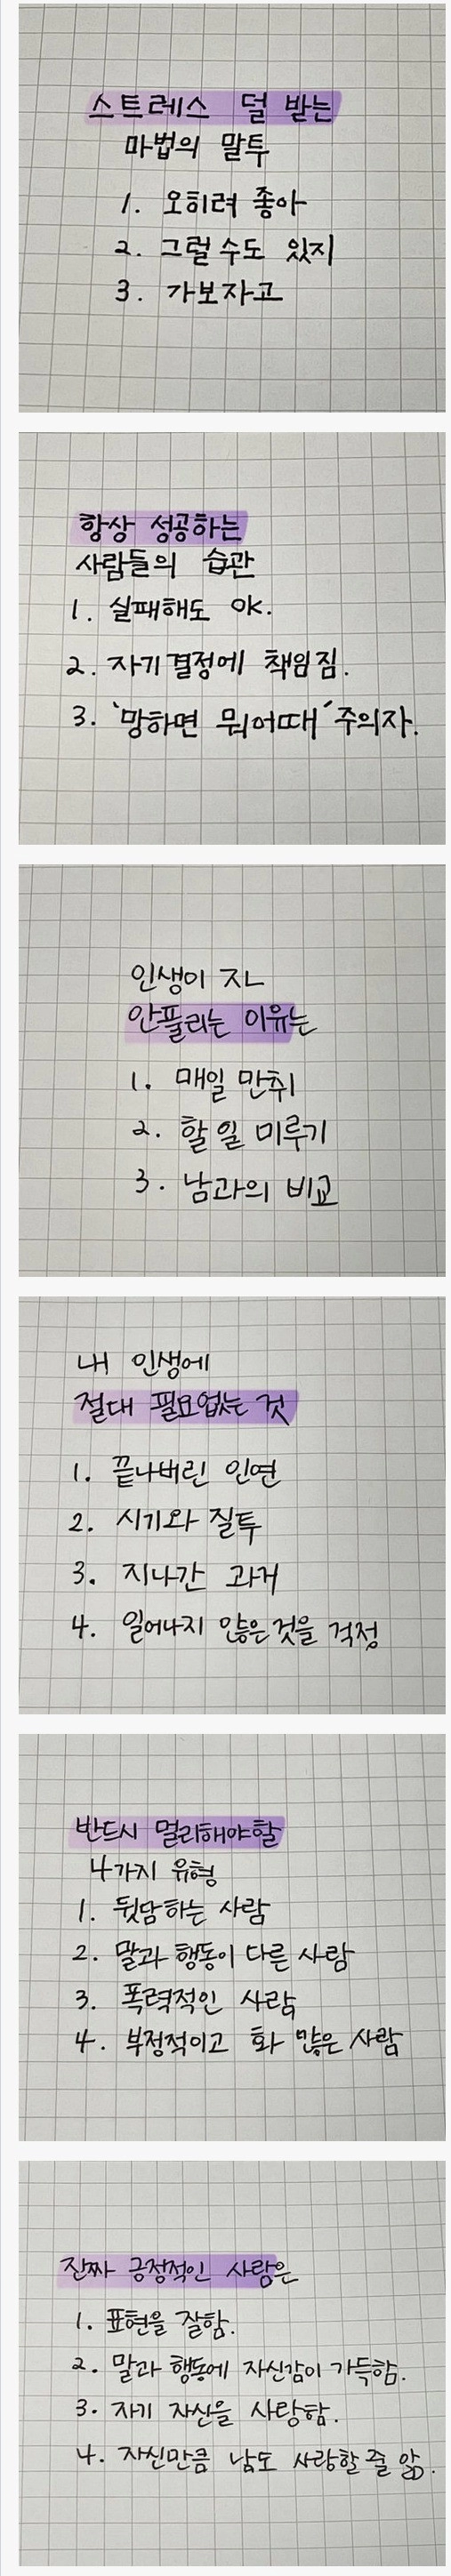 스트레스 덜 받는
마법의 말투
1. 오히려 좋아
2. 그럴 수도 있지
3. 가보자고
항상 성공하는
사람들의 습관
1. 실패해도 OK.
2. 자기 결정에 책임 짐.
3. '망하면 뭐 어때' 주의자.
인생이 잘
안풀리는 이유는
1. 매일 만취
2. 할 일 미루기
3. 남과의 비교
내 인생에
절대 필요없는 것
1. 끝나버린 인연
2. 시기와 질투
3. 지나간 과거
4. 일어나지 않은것을 걱정
반드시 멀리해야할
4가지 유형
1. 뒷담하는 사람
2. 말과 행동이 다른 사람
3. 폭력적인 사람
4. 부정적이고 화 많은 사람
진짜 긍정적인 사람은
1. 표현을 잘함.
2. 말과 행동에 자신감이 가득함.
3. 자기 자신을 사랑함.
4. 자신만큼 남도 사랑할 줄 앎.